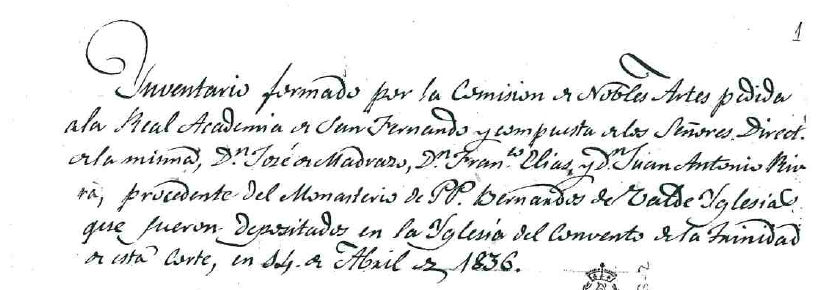 1
Inventario formado por la Comision de Nobles Artes pedida
a la Real Academia de San Fernando y compuesta de los Señores Direct.
de la misma, D.n José de Madrazo, D.n Fran.co Elias, y d.n Juan Antonio Rive-
ra, procedente del Monasterio de PP. Bernardos de Valde Yglesias
que fueron depositados en la Yglesia del Convento de la Trinidad
de esta Corte, en 14 de Abril de 1836.